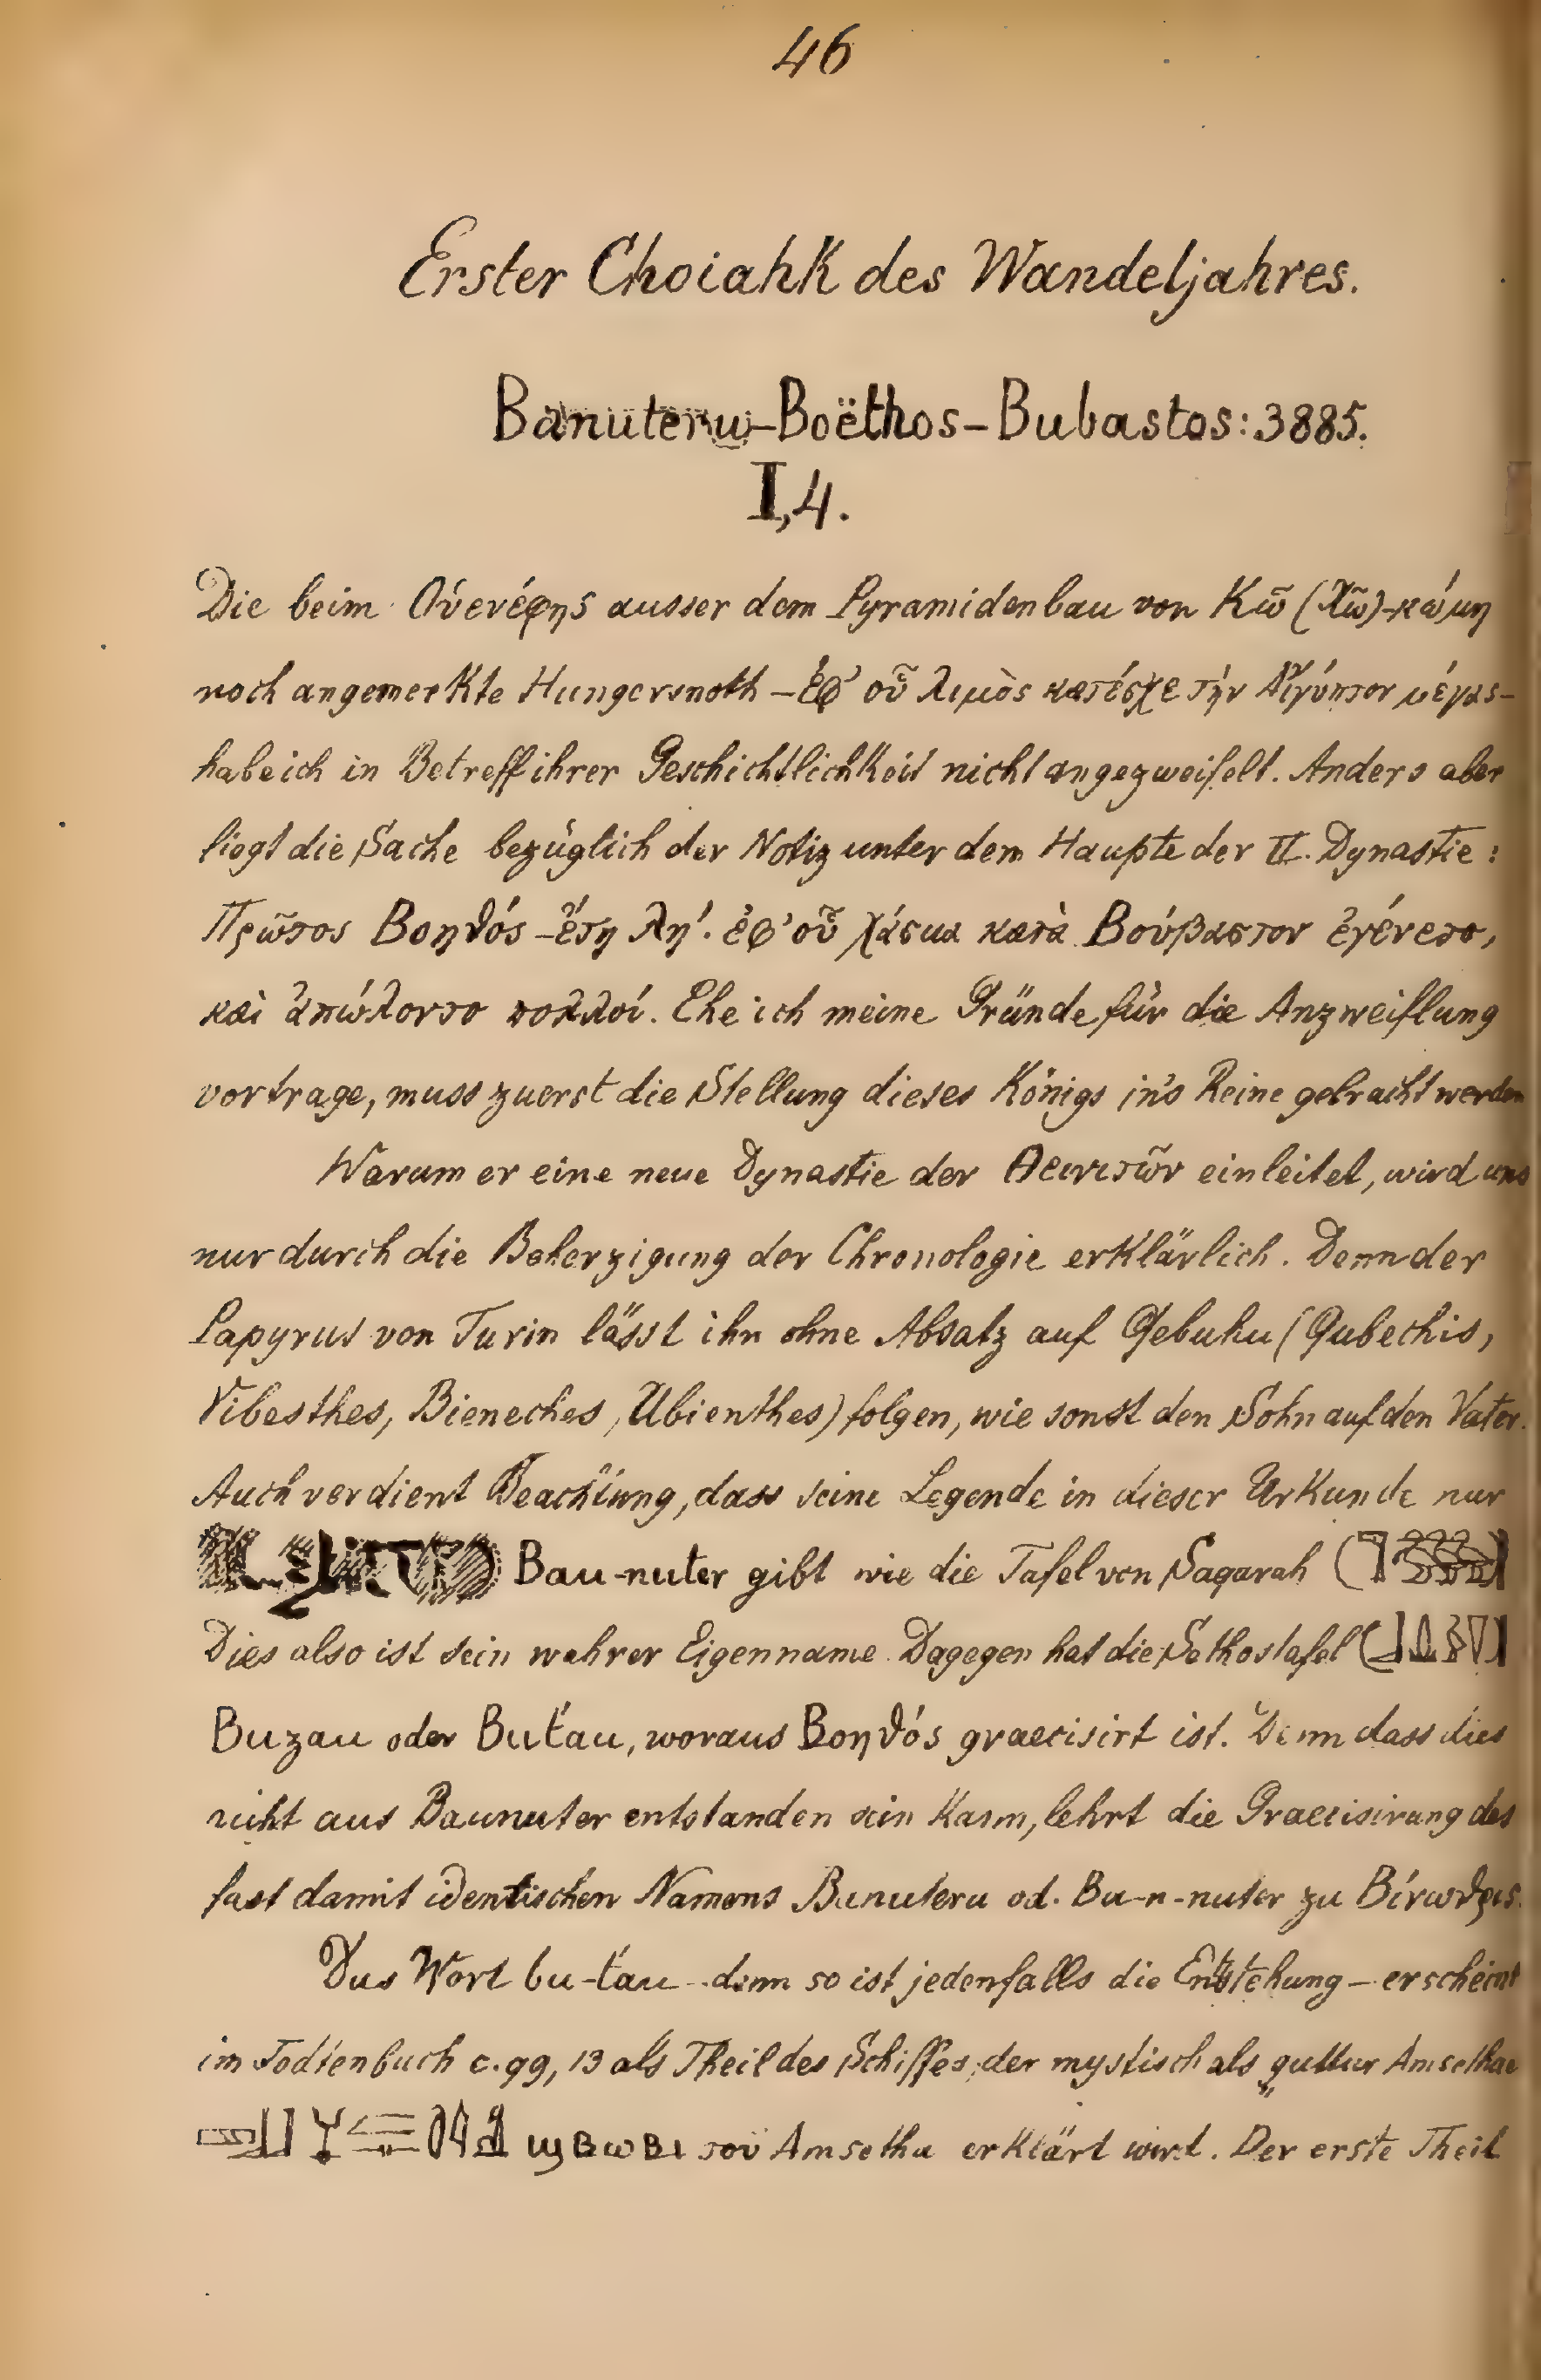 46
Erster Choiahk des Wandeljahres.
Banuteru-Boëthos-Bubastos: 3885.
I,4.
Die beim Οὐενέφης ausser dem Pyramidenbau von Κῶ (Χῶ)-κώμη
noch angemerkte Hungersnoth – ἐφ' οὗ λιμὸς κατέσχε τὴν Αἴγύπτον μέγας –
habe ich in Betreff ihrer Geschichtlichkeit nicht angezweifelt. Anders aber
liegt die Sache bezüglich der Notiz unter dem Haupte der II. Dynastie:
Πρῶτος Βοηθός – ἔτη λη'. ἐφ' οὗ χάσμα κατὰ Βούβαστον ἐγένετο,
καὶ ἀπώλοντο πολλοί. Ehe ich meine Gründe für die Anzweiflung
vortrage, muss zuerst die Stellung dieses Königs in's Reine gebracht werden
Warum er eine neue Dynastie der Θεινιτῶν einleitet, wird uns
nur durch die Beherzigung der Chronologie erklärlich. Denn der
Papyrus von Turin lässt ihn ohne Absatz auf Qebuhu (Qubechis,
Vibesthes, Bieneches, Ubienthes) folgen, wie sonst den Sohn auf den Vater.
Auch verdient Beachtung, dass seine Legende in dieser Urkunde nur
Bau-nuter gibt wie die Tafel von Saqarah
Dies also ist sein wahrer Eigenname. Dagegen hat die Sethostafel
Buzau oder But́au, woraus Βοηθός graecisirt ist. Denn dass dies
nicht aus Baunuter entstanden sein kann, lehrt die Graecisirung des
fast damit identischen Namens Banuteru od. Ba-n-nuter zu Βίνωθρις.
Das Wort bu-t́au – denn so ist jedenfalls die Entstehung – erscheint
im Todtenbuch c. 99, 13 als Theil des Schiffes, der mystisch als „guttur Amsethae
ϣⲃⲱⲃⲓ τοῦ Amsetha erklärt wird. Der erste Theil